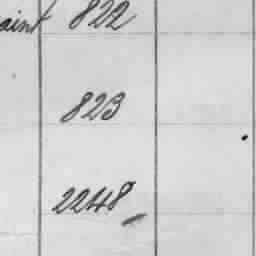 aint 822
823
2248